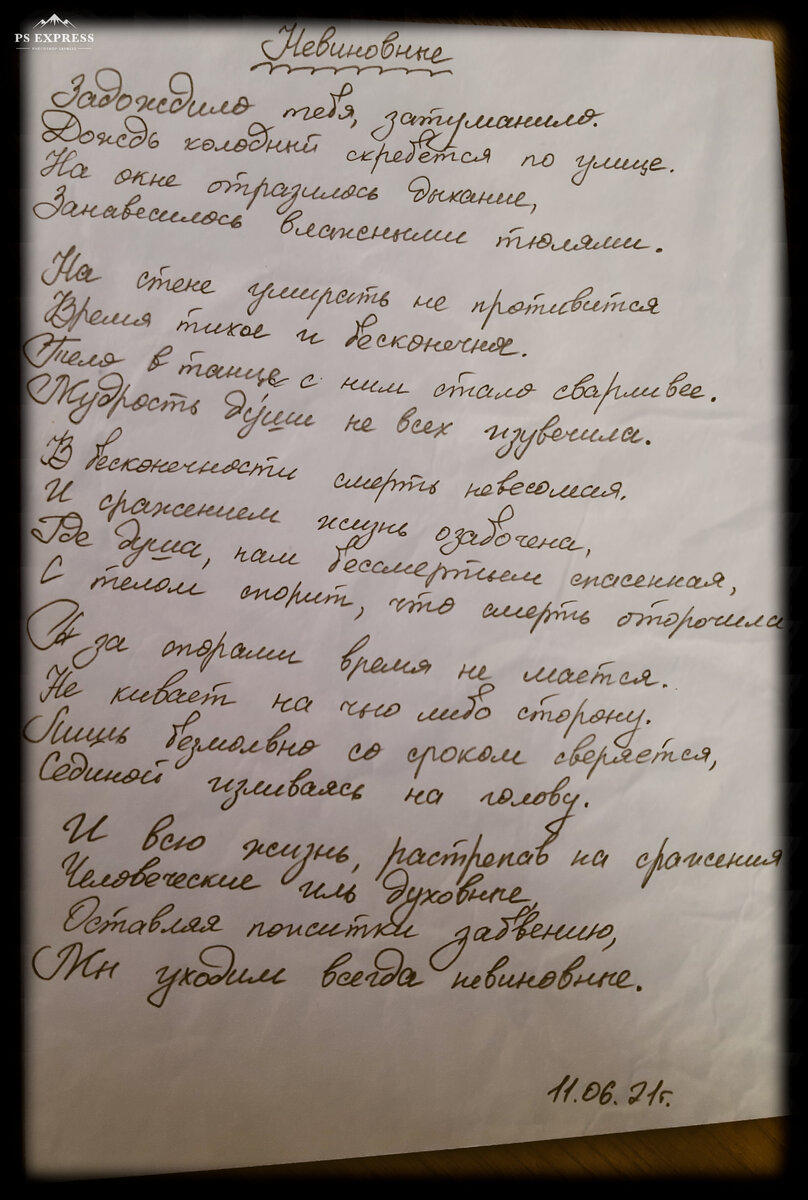 PS EXPRESS
Невиновные
Задождило тебя, затуманило.
Дождь холодный скребётся по улице.
На окне отразилось дыхание,
Занавесилось влажными тюлями.
На стене умирать не противится
Время тихое и бесконечное.
Тело в танце с ним стало сварливее.
Мудрость ду́ши не всех изувечила.
В бесконечности смерть невесомая.
И сражением жизнь озабочена,
Где душа, нам бессмертьем спасенная,
С телом спорит, что смерть оторочила
И за спорами время не мается.
Не кивает на чью либо сторону.
Лишь безмолвно со сроком сверяется,
Сединой изливаясь на голову.
И всю жизнь, растрепав на сражения
Человеческие иль духовные,
Оставляя пожитки забвению,
Мы уходим всегда невиновные.
11.06.21г.